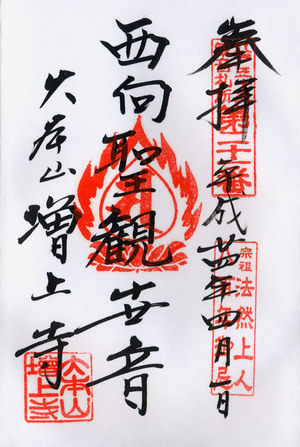 奉拝
第二十一番
平成廿四年四月一日
宗祖
法然上人
西向聖観世音
大本山増上寺
大本山
増上寺